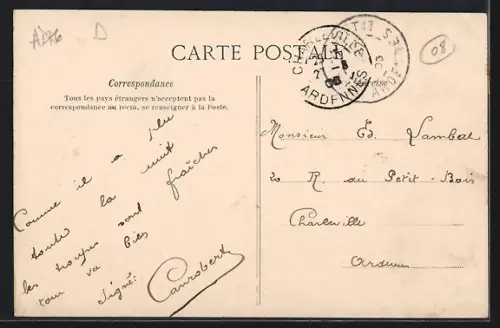 A176
D
CARTE POSTALE
08
CHARLEVILLE
ARDENNES
Correspondance
Tous les pays étrangers n'acceptent pas la
correspondance au recto, se renseigner à la Poste.
Adresse
Comme il a plu
toute la nuit
les troupes sont fraîches
tout va bien
Signé: Canrobert
Monsieur Ed. Lambal
20 R. du Petit-Bois
Charleville
Ardennes